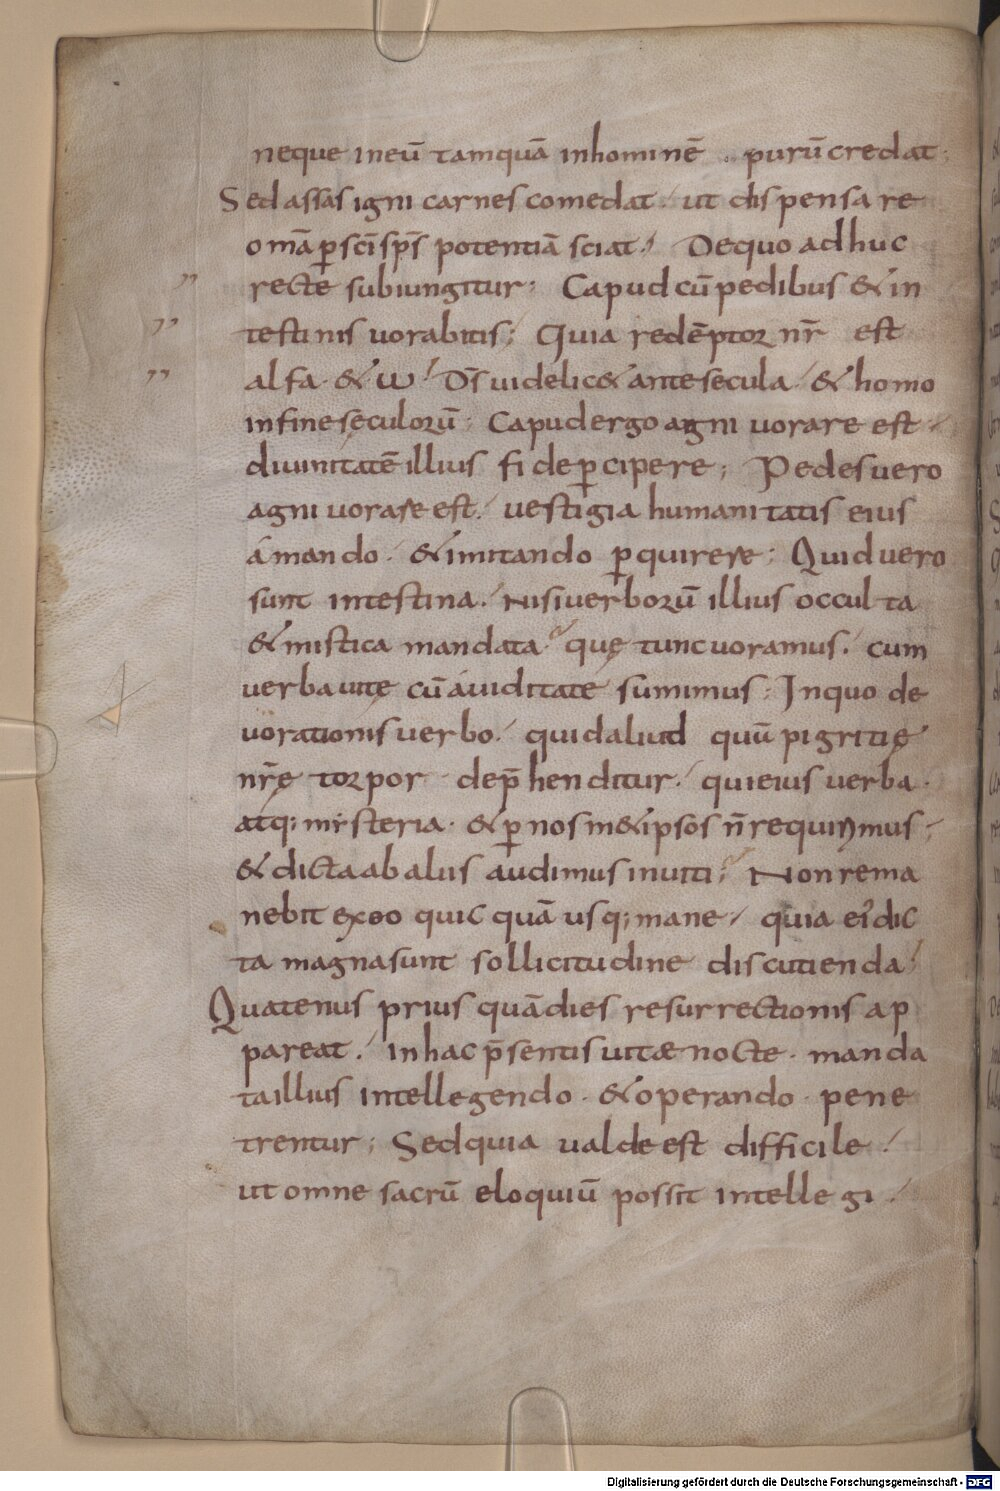 neque in eū tamquā in hominē purū credat.
Sed assas igni carnes comedat. ut dispensare
omā p̲ sc̄i sp̄s potentiā sciat. De quo adhuc
recte subiungitur; Capud cū pedibus & in
testinis uorabitis; Quia redēptor nr̄ est
alfa & ω. Ds̄ uidelic& ante secula. & homo
in fine seculorū; Capud ergo agni uorare est
diuinitatē illius fide p̲cipere; Pedes uero
agni uorare est. uestigia humanitatis eius
amando. & imitando p̲quirere; Quid uero
sunt intestina. Nisi uerborū illius occulta
& mistica mandata. quę tunc uoramus. cum
uerba uitę cū auiditate sumimus; In quo de
uorationis uerbo. quid aliud quū pigritię
nr̄ę torpor dep̄henditur. qui eius uerba.
atq; misteria. & p̲ nos m& ipsos n̄ requirimus;
& dicta ab aliis audimus inuiti; Non rema
nebit ex eo quicquā usq; mane. quia ei' dic
ta magna sunt sollicitudine discutienda.
Quatenus prius quā dies resurrectionis ap
pareat. in hac p̄sentis uitæ nocte. manda
ta illius intellegendo. & operando. pene
trentur; Sed quia ualde est difficile.
ut omne sacrū eloquiū possit intellegi.
Digitalisierung gefördert durch die Deutsche Forschungsgemeinschaft - DFG